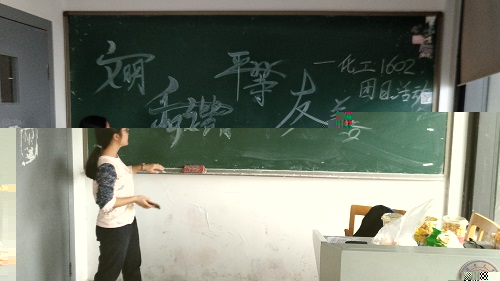 文明 平等 一化工1602
和谐 友善 团日活动